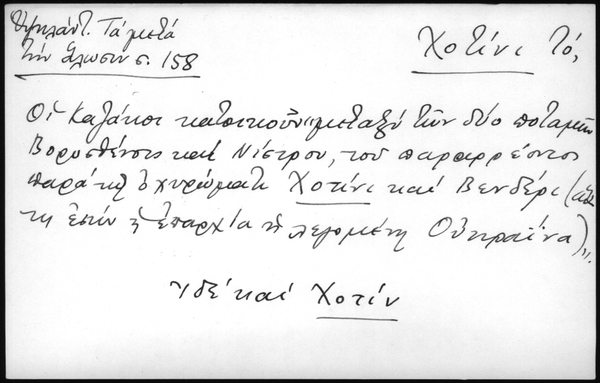 Ὑψηλάντ. Τά μετά
τήν ἅλωσιν σ. 158
Χοτίνι τό,
Οἱ Καζάκοι κατοικοῦν "μεταξύ τῶν δύο ποταμῶν
Βορυσθένους καί Νίστρου, τοῦ παραρρέοντος
παρά τά ὀχυρώματα Χοτίνι καί Βενδέρι (αὕτη
ἐστίν ἡ ἐπαρχία ἡ λεγομένη Οὐκραΐνα)".
Ἰδέ καί Χοτίν